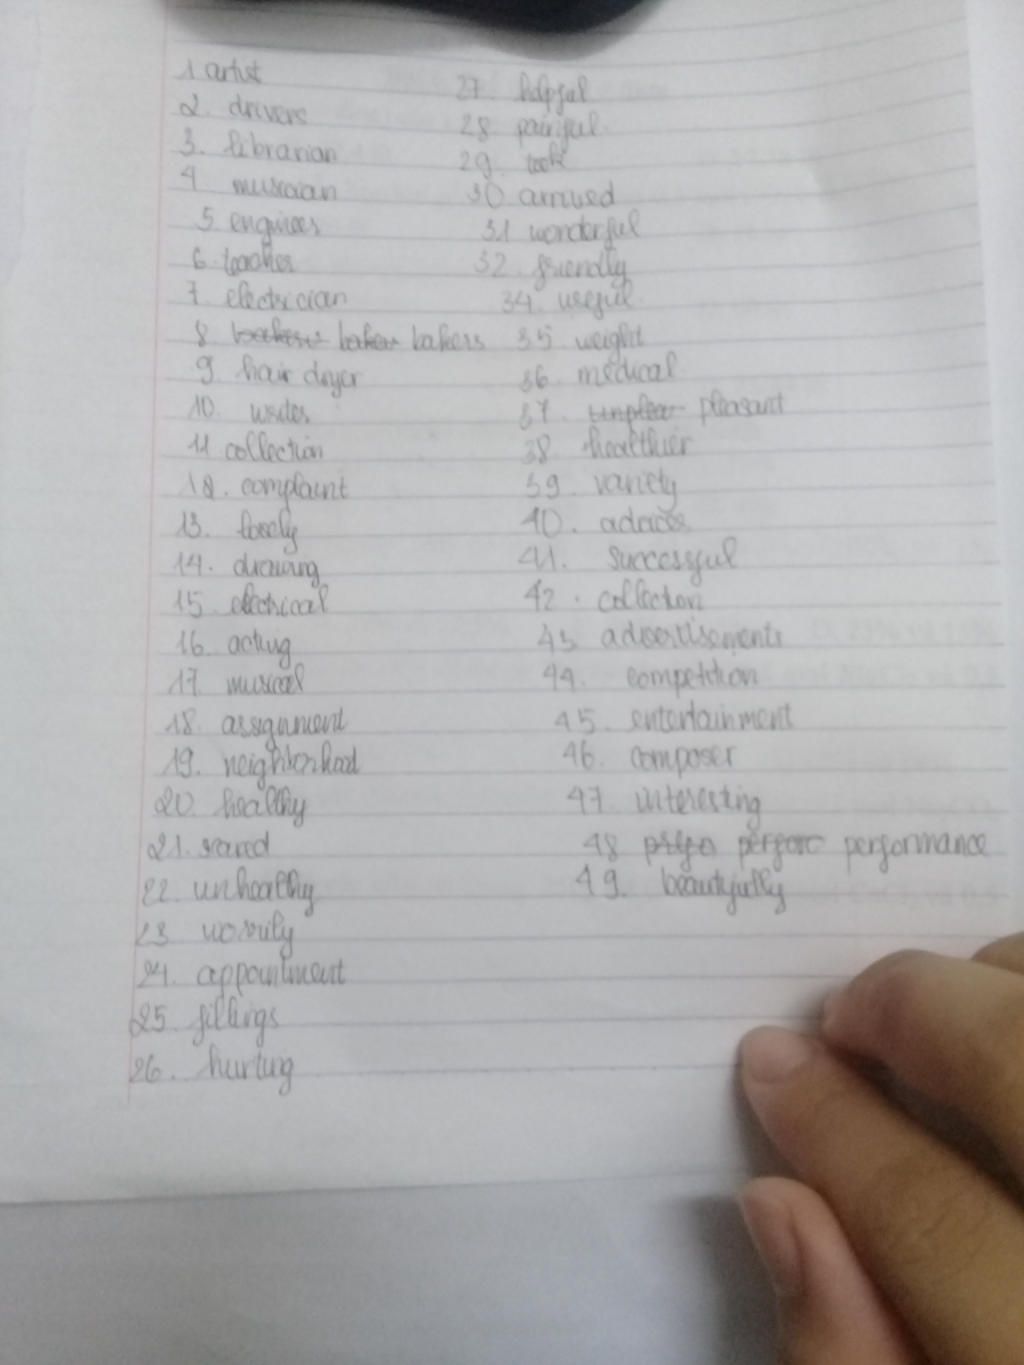 1 artist
2. drivers
3. librarian
4 musician
5 engineer
6 teacher
7. electrician
8 bakers
9 hair dryer
10. writer
11 collection
12. complaint
13.
14. drawing
15. electrical
16 acting
17. musical
18. assignment
19. neighborhood
20. healthy
21. scared
22. unhealthy
23
24. appointment
25. fillings
26. hurting
27. helpful
28 painful
29. took
30 arrived
31 wonderful
32. friendly
34. useful
35 weight
36. medical
37. pleasant
38. healthier
39. variety
40.
41. successful
42. collection
43 advertisements
44. competition
45. entertainment
46. composer
47 interesting
48 performance
49. beautifully